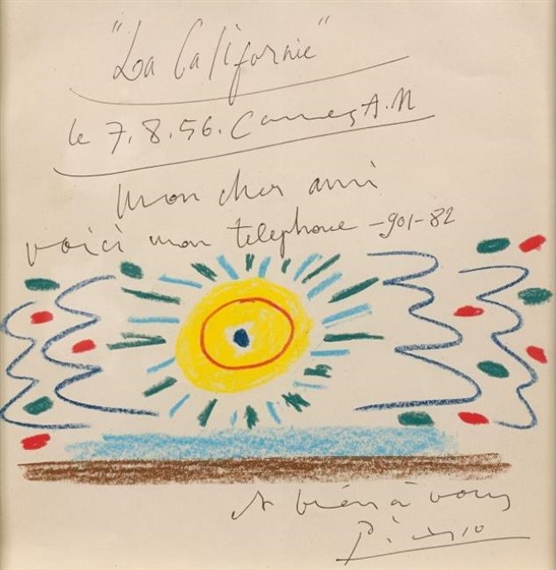 "La Californie"
le 7.8.56. Cannes A.M
Mon cher ami
voici mon telephone -901-82
et bien à vous
Picasso